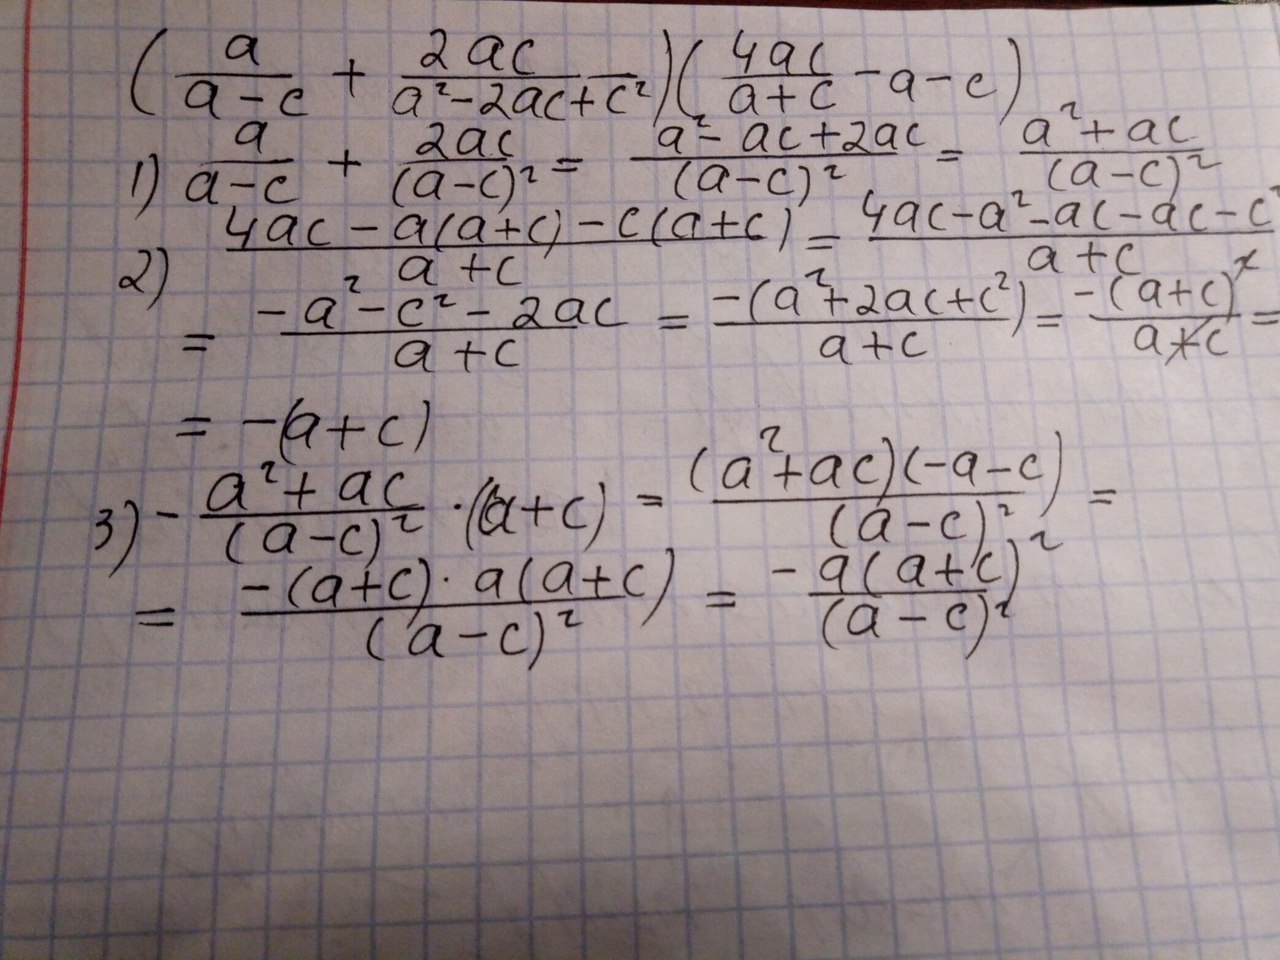 (a/(a-c) + 2ac/(a²-2ac+c²))(4ac/(a+c) - a - c)
1) a/(a-c) + 2ac/(a-c)² = (a²-ac+2ac)/(a-c)² = (a²+ac)/(a-c)²
2) (4ac-a(a+c)-c(a+c))/(a+c) = (4ac-a²-ac-ac-c²)/(a+c)
= (-a²-c²-2ac)/(a+c) = -(a²+2ac+c²)/(a+c) = -(a+c)²/(a+c) =
= -(a+c)
3) - (a²+ac)/(a-c)² · (a+c) = (a²+ac)(-a-c)/(a-c)² =
= -(a+c)·a(a+c)/(a-c)² = -a(a+c)²/(a-c)²